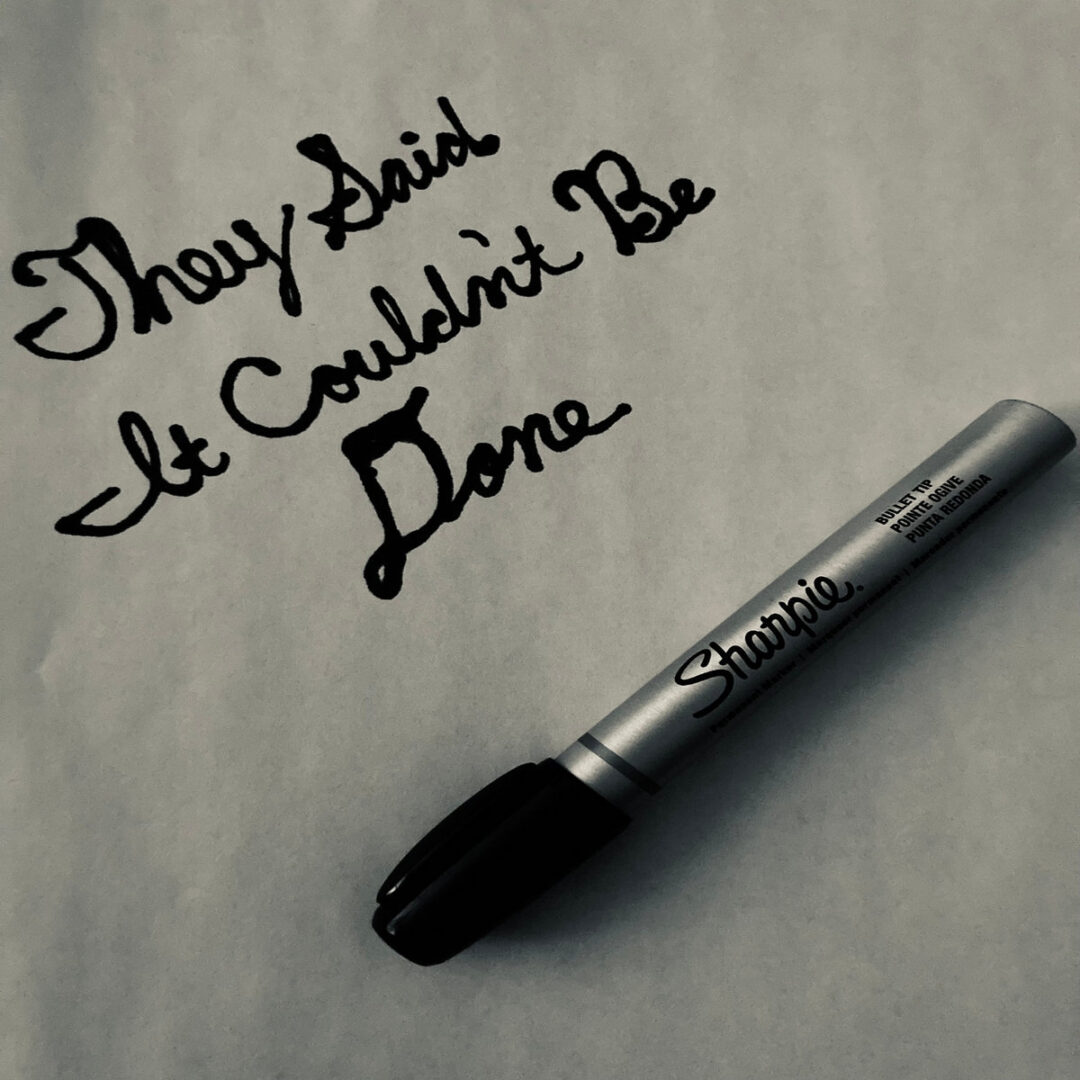 They Said
It Couldn't Be
Done
BULLET TIP
POINTE OGIVE
PUNTA REDONDA
Sharpie.
Permanent Marker | Marqueur permanent | Marcador permanente